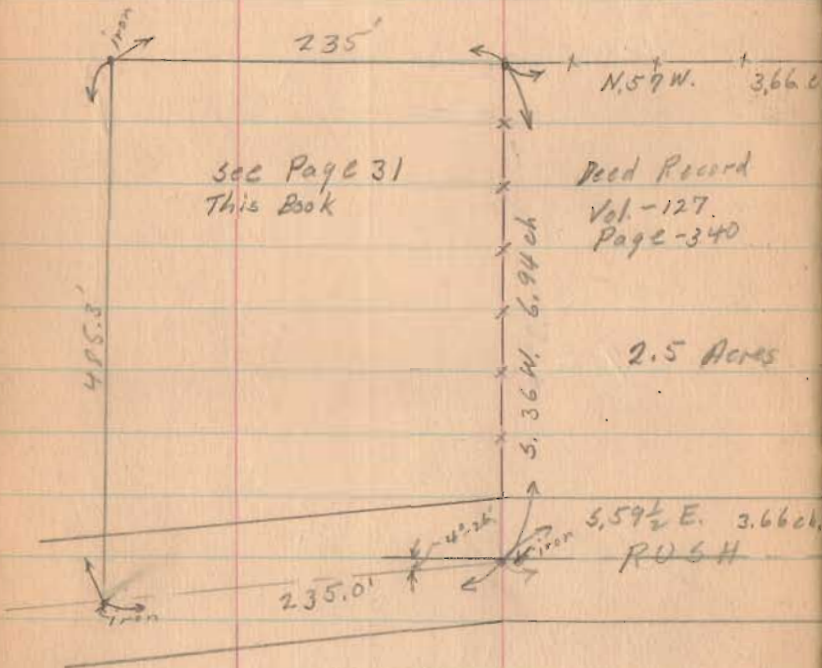 iron
235'
N. 57 W. 3.66 c
See Page 31
This Book
Deed Record
Vol. - 127.
Page - 340
485.3'
S. 36 W. 6.94 ch
2.5 Acres
S. 59½ E. 3.66 ch.
RUSH
iron
235.0'
iron